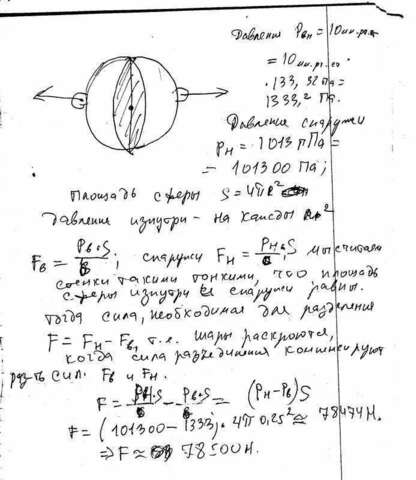 Давления Pвн = 10 мм.рт.ст
= 10 мм.рт.ст.
· 133,32 Па =
1333,2 Па.
Давление снаружи
Pн = 1013 гПа =
= 101300 Па;
Площадь сферы S = 4πR²
давление изнутри – на каждый
Fв = Pв·S/6; снаружи Fн = Pн·S/6 мы считаем
стенки такими тонкими, что площадь
сферы изнутри и снаружи равны.
Тогда сила, необходимая для разделения
F = Fн – Fв, т.е. шары раскроются,
когда сила разъединения компенсирует
разность сил Fв и Fн.
F = Pн·S/6 – Pв·S/6 = (Pн–Pв)S
F = (101300 – 1333) · 4π 0,25² ≈ 78474 Н.
⇒ F ≈ 78500 Н.